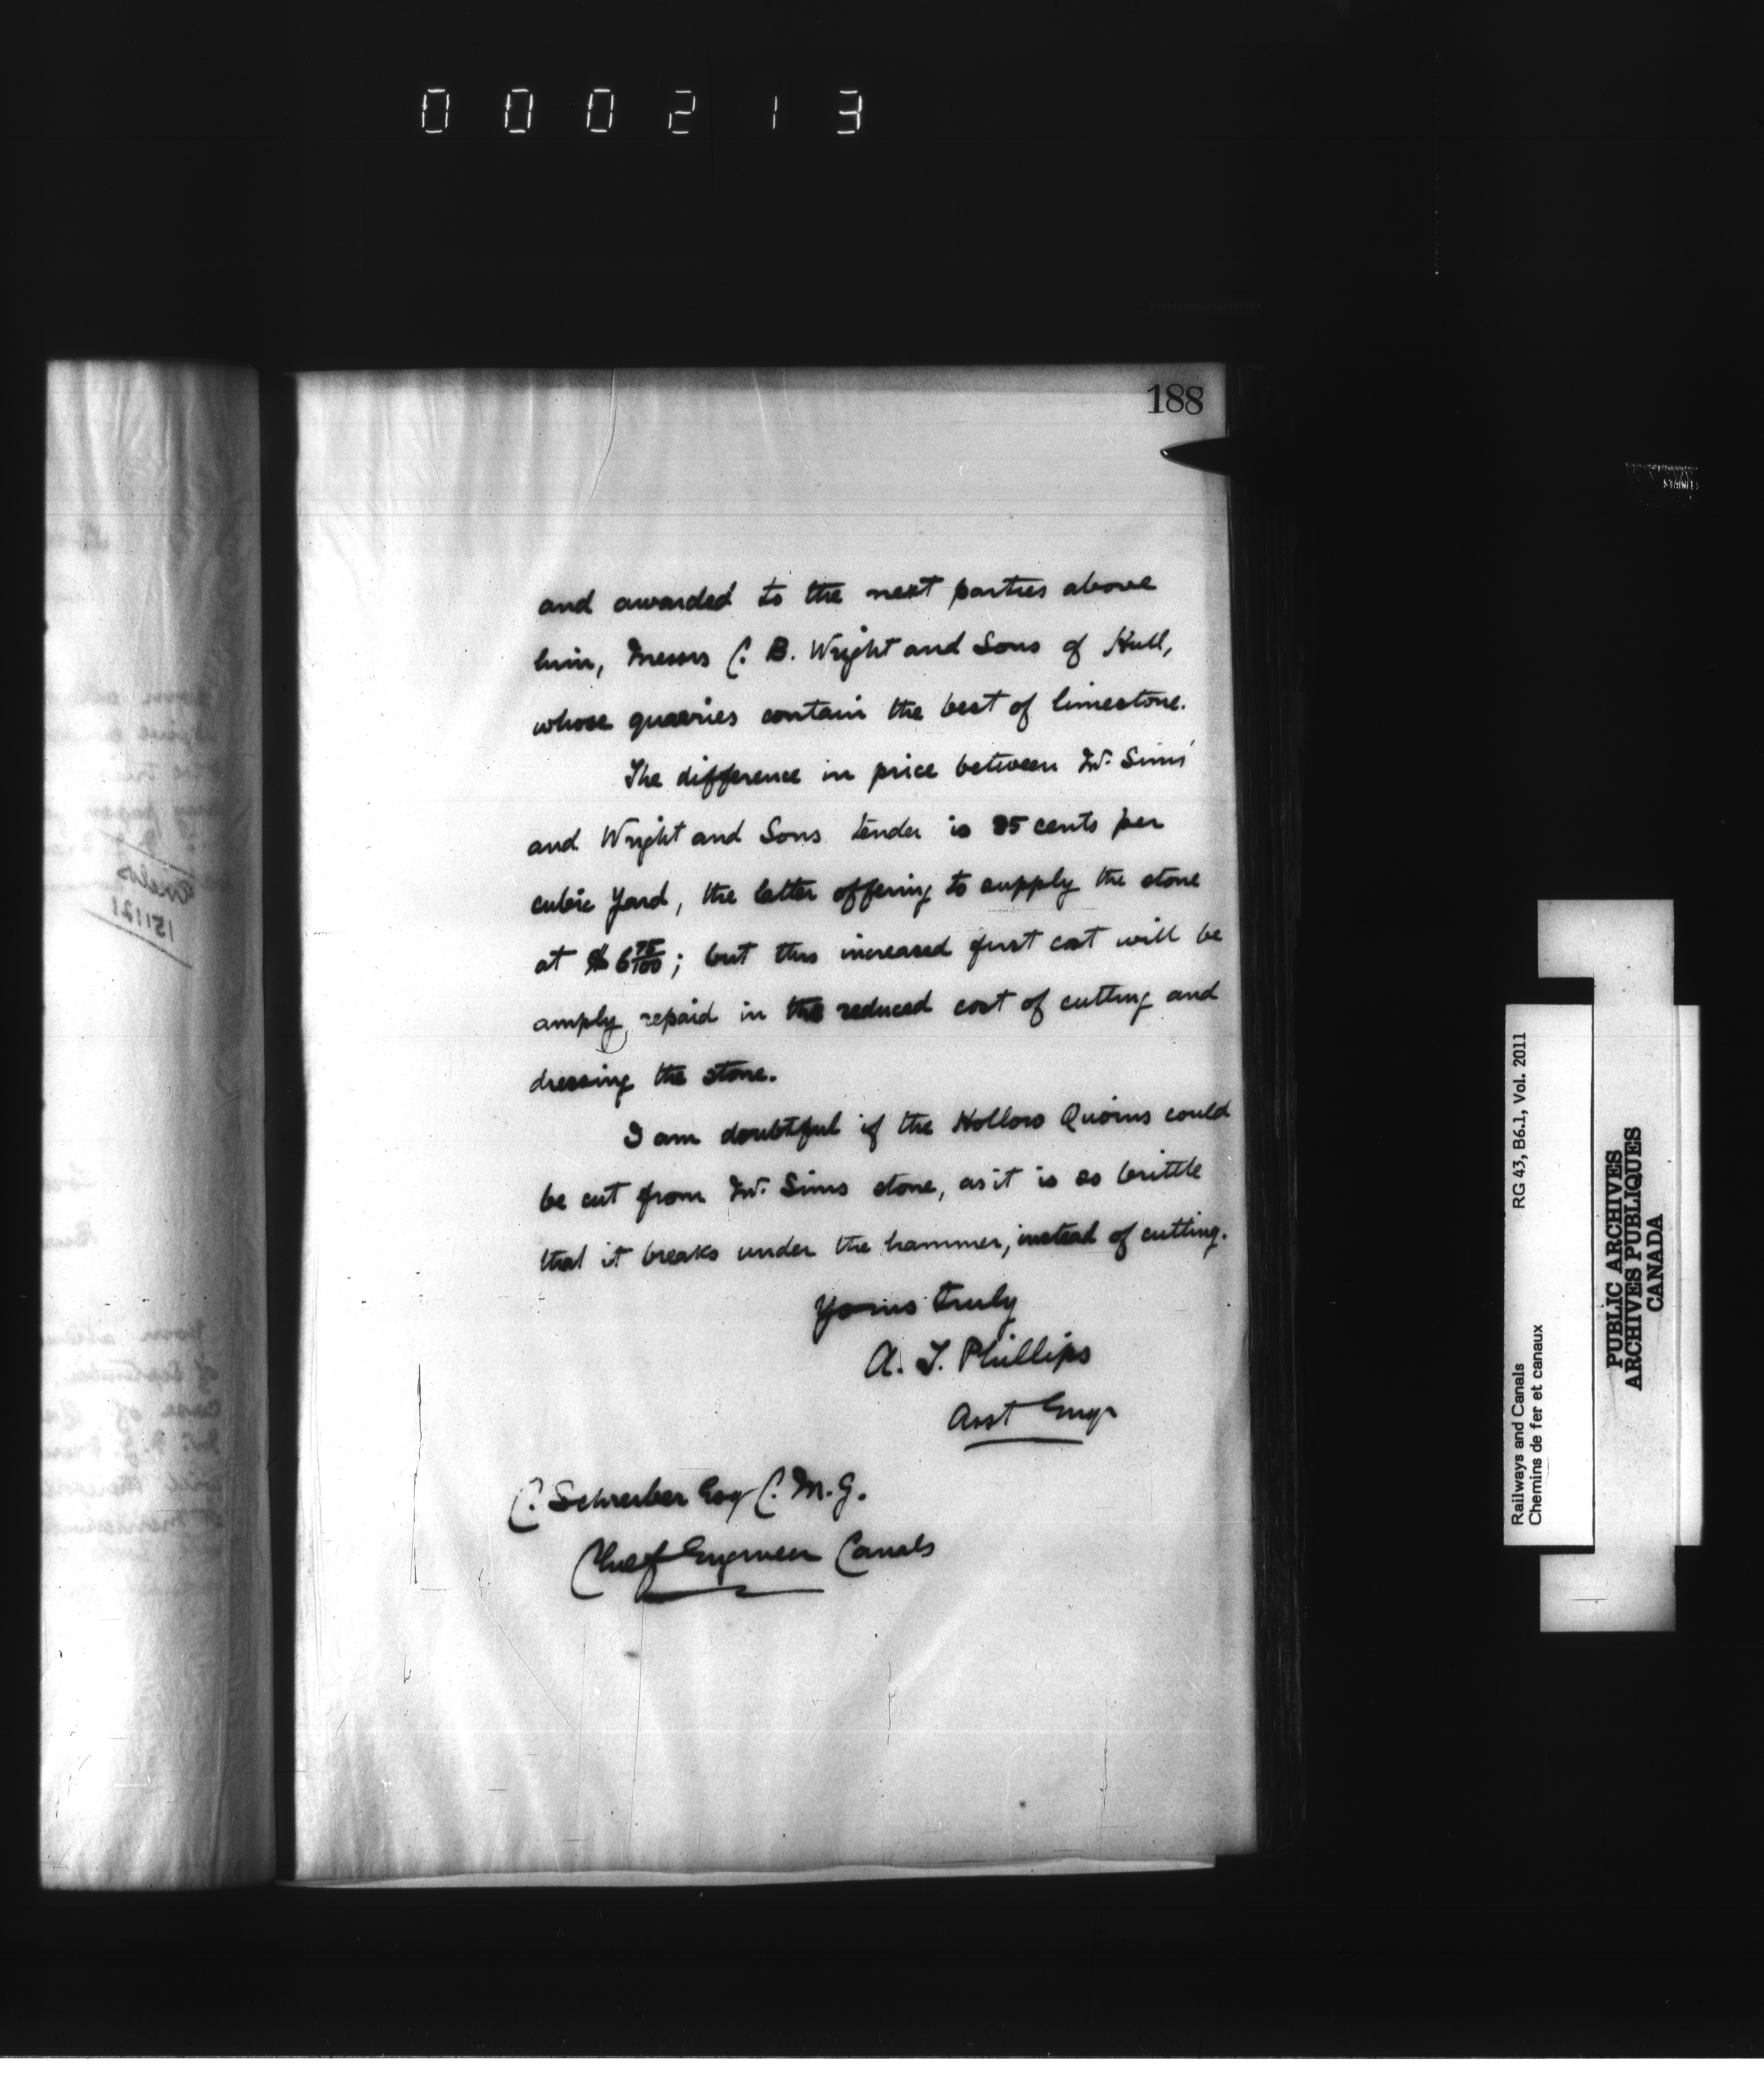 000213
188
and awarded to the next parties above
him, Messrs C. B. Wright and Sons of Hull,
whose quarries contain the best of limestone.
The difference in price between Mr. Sims'
and Wright and Sons tender is cents per
cubic Yard, the latter offering to supply the stone
at $6 75/100; but this increased first cost will be
amply repaid in the reduced cost of cutting and
dressing the stone.
I am doubtful if the Hollow Quoins could
be cut from Mr. Sims stone, as it is so brittle
that it breaks under the hammer, instead of cutting.
Yours truly
A. T. Phillips
Asst Engr
C. Schreiber Esq C. M. G.
Chief Engineer Canals
Railways and Canals RG 43, B6.1, Vol. 2011
Chemins de fer et canaux
PUBLIC ARCHIVES
ARCHIVES PUBLIQUES
CANADA